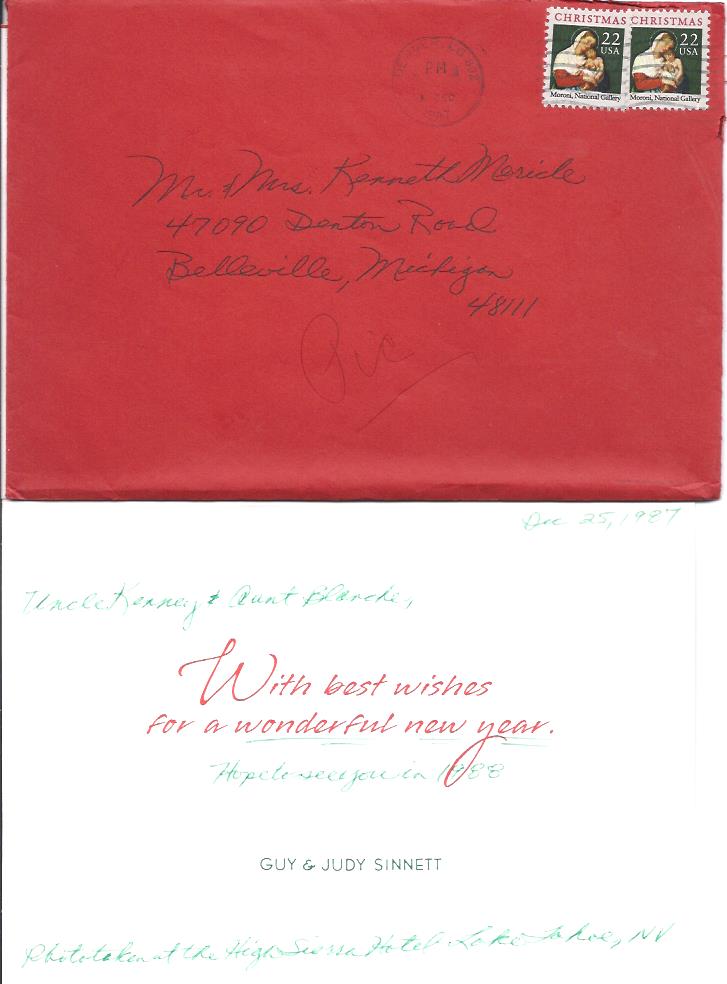 CHRISTMAS CHRISTMAS
22 USA 22 USA
Moroni, National Gallery Moroni, National Gallery
PM
Mr. & Mrs. Kenneth Mericle
47090 Denton Road
Belleville, Michigan
48111
Pic
Dec 25, 1987
Uncle Kenney & Aunt Blanche,
With best wishes
for a wonderful new year.
Hope to see you in 1988
GUY & JUDY SINNETT
Photo taken at the High Sierra Hotel Lake Tahoe, NV